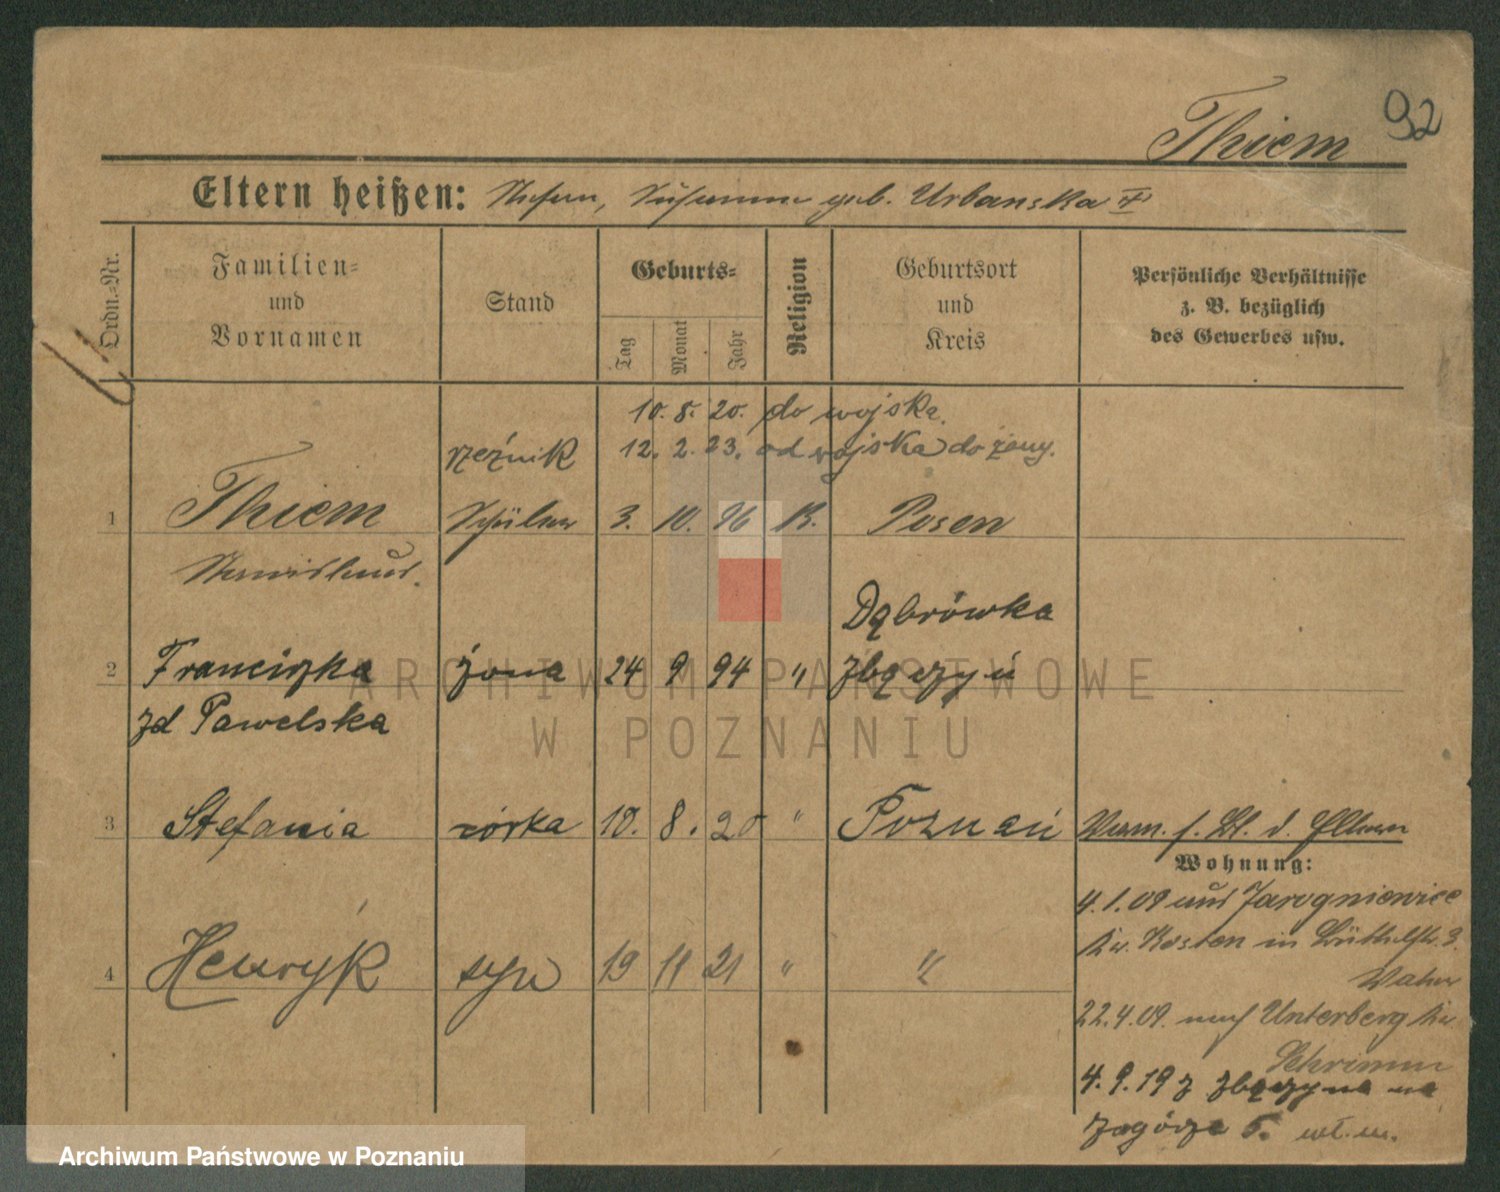 92
Thiem
Eltern heißen: Stefan, Susanna geb. Urbanska
Ordn.-Nr.
Familien-
und
Vornamen
Stand
Geburts-
Tag
Monat
Jahr
Religion
Geburtsort
und
Kreis
Persönliche Verhältnisse
z. B. bezüglich
des Gewerbes usw.
10. 8. 20. do wojska.
12. 2. 23. od wojska do żony.
rzeźnik
1 Thiem Schüler 3. 10. 96 K. Posen
Stanislaus.
Dąbrówka
2 Franciszka żona 24 9 94 " Zbąszyń
zd Pawelska
3 Stefania córka 10. 8. 20 " Poznań
Verm. s. Bl. d. Eltern
Wohnung:
4.1.09 aus Jarogniewice
Kr. Kosten in
4 Henryk syn 19 11 21 " "
Vater
22.4.09. nach Unterberg Kr.
Schrimm
4.9.19 z Zbąszyna na
Zagórze 5. wł. m.
ARCHIWUM PAŃSTWOWE
W POZNANIU
Archiwum Państwowe w Poznaniu